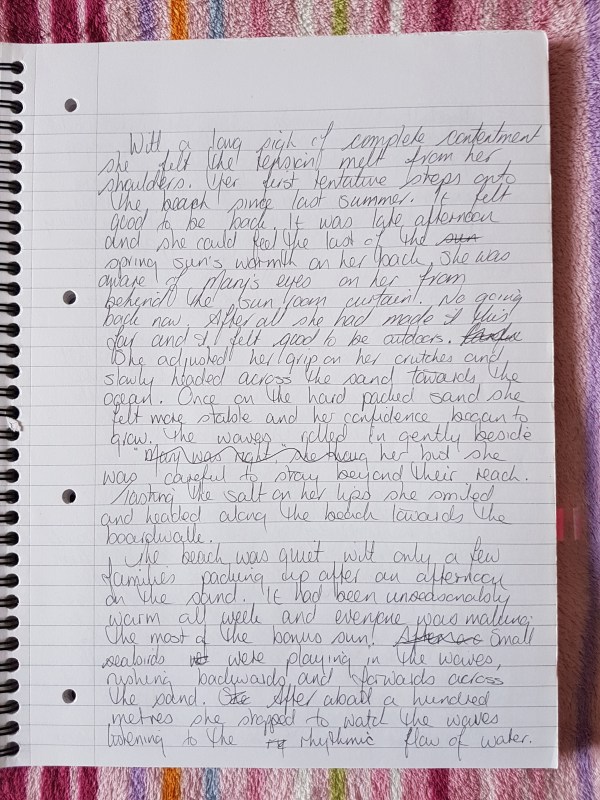 With a long sigh of complete contentment
she felt the tension melt from her
shoulders. Her first tentative steps onto
the beach since last summer. It felt
good to be back. It was late afternoon
and she could feel the last of the sun
spring sun's warmth on her back. She was
aware of Mary's eyes on her from
behind the sun room curtain. No going
back now. After all she had made it this
far and it felt good to be outdoors.
She adjusted her grip on her crutches and
slowly headed across the sand towards the
ocean. Once on the hard packed sand she
felt more stable and her confidence began to
grow. The waves rolled in gently beside
"Mary was right," she thoug her but she
was careful to stay beyond their reach.
Tasting the salt on her lips she smiled
and headed along the beach towards the
boardwalk.
The beach was quiet with only a few
families packing up after an afternoon
on the sand. It had been unseasonably
warm all week and everyone was making
the most of the bonus sun. Small
seabirds were playing in the waves,
rushing backwards and forwards across
the sand. She After about a hundred
metres she stopped to watch the waves
listening to the rhythmic flow of water.